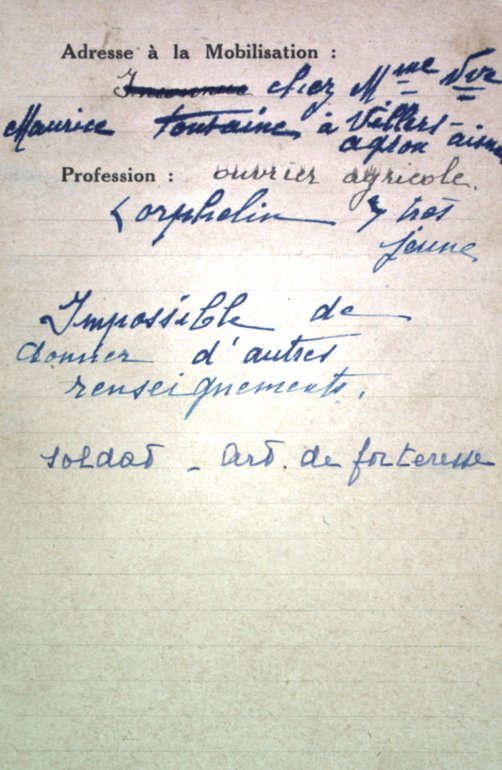 Adresse à la Mobilisation :
Inconnue chez Mme Vve
Maurice Fontaine à Villers-
agron aisne
Profession : ouvrier agricole.
orphelin très
jeune
Impossible de
donner d'autres
renseignements.
soldat - art. de forteresse